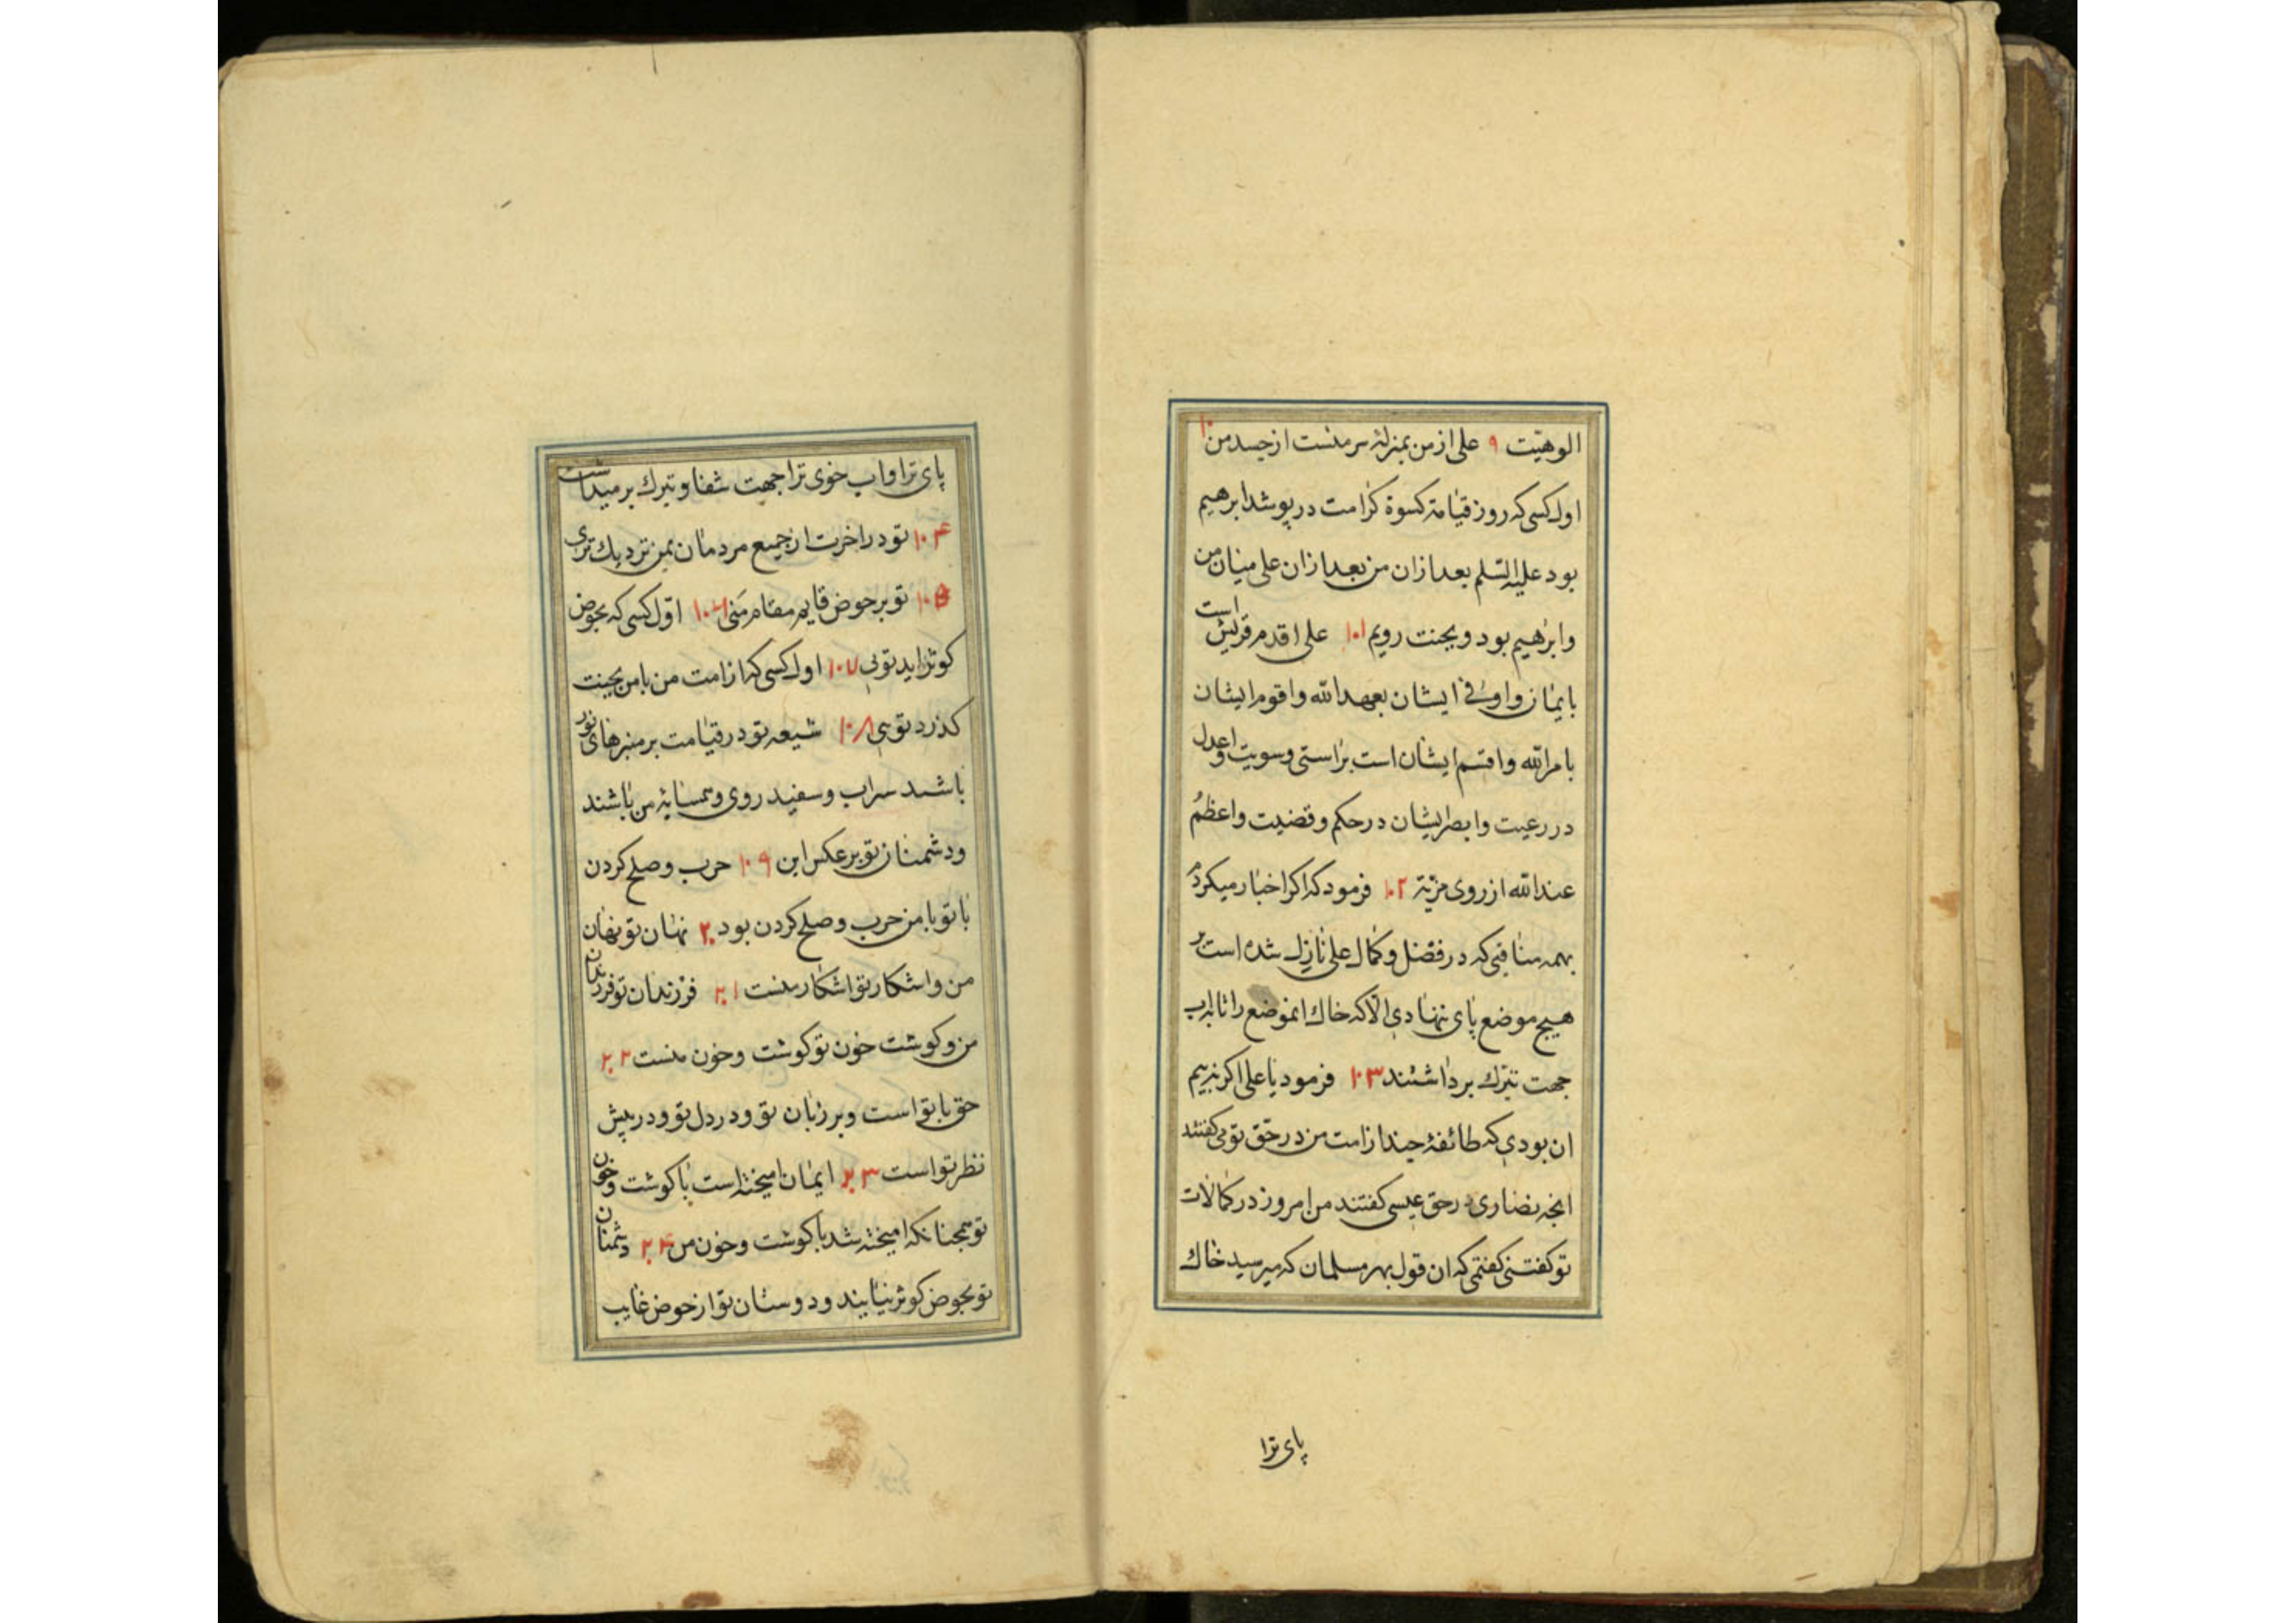 الوهیّت ۹ علی از من بمنزلهٔ سر منست از جسد من ۱۰
اول کسی که روز قیامة کسوة کرامت در پوشد ابرهیم
بود علیه السّلم بعد ازان من بعد ازان علی میان من
وابرهیم بود وبجنت رویم ۱۰۱ علی اقدم قریش است
بایمان واوفی ایشان بعهد الله واقوم ایشان
بامر الله واقسم ایشان است براستی وسویت واعدل
در رعیت وابصر ایشان در حکم وقضیت واعظم
عند الله از روی مزیّة ۱۰۲ فرمود که اکر اخبار میکردم
بهمه مناقبی که در فضل وکمال علی نازل شده است بر
هیچ موضع پای ننهادی الّا که خاک انموضع را تا به اب
جهت تبرّک برداشتند ۱۰۳ فرمود یا علی اکر نه بیم
ان بودی که طائفهٔ چند از امت من در حقّ تو بی کفتند
انچه نصاری در حق عیسی کفتند من امروز در کمالات
تو کفتنی کفتمی که ان قول بهر مسلمان که میرسید خاک
پای ترا
پای ترا واب خوی ترا جهت شفا وتبرک برمیداشت
۱۰۴ تو در اخرت از جمیع مردمان بمن نزدیک تری
۱۰۵ تو بر حوض قایم مقام منی ۱۰۶ اوّل کسی که بحوض
کوثر اید تویی ۱۰۷ اول کسی که از امت من با من بجنت
کذرد تویی ۱۰۸ شیعه تو در قیامت بر منبرهای نور
باشند سراب وسفید روی وهمسایهٔ من باشند
ودشمنان تو برعکس این ۱۰۹ حرب وصلح کردن
با تو با من حرب وصلح کردن بود ۲۰ نهان تو نهان
من واشکار تو اشکار منست ۲۰۱ فرزندان تو فرزندان
من وکوشت خون تو کوشت وخون منست ۲۰۲
حق با تو است وبر زبان تو ودر دل تو ودر پیش
نظر تو است ۲۰۳ ایمان امیخته است با کوشت وخون
تو همچنانکه امیخته شد با کوشت وخون من ۲۰۴ دشمنان
تو بحوض کوثر نیایند ودوستان تو از حوض غایب